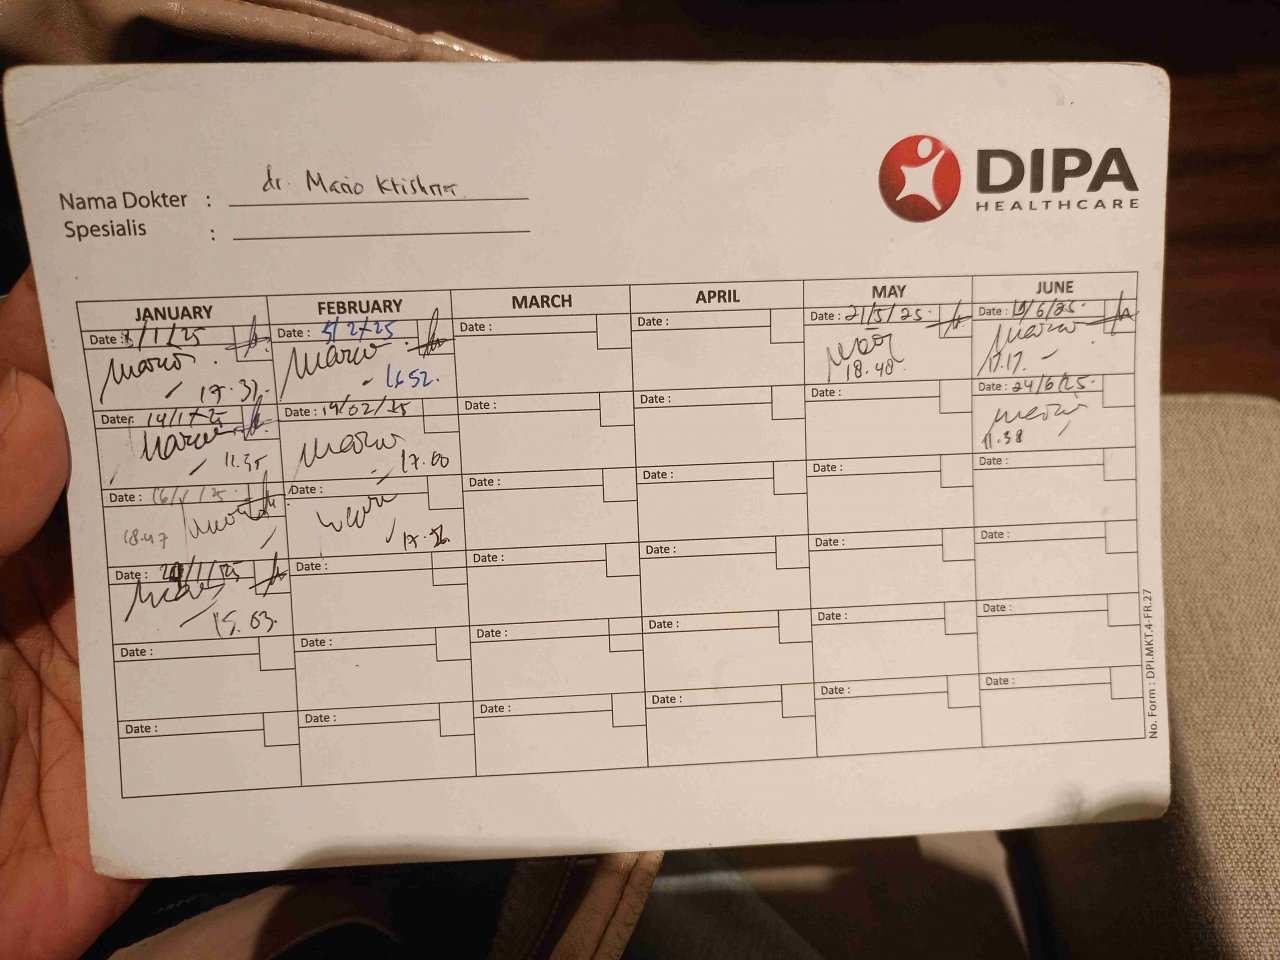 DIPA
HEALTHCARE
Nama Dokter : dr. Mario Krishna
Spesialis :
JANUARY FEBRUARY MARCH APRIL MAY JUNE
Date : /1/25 Date : 5/2/25 Date : Date : Date : 21/5/25 Date : 19/6/25
Mario Mario 18.48 Mario
17.32. 16.52. 17.17.
Date : 14/1/25 Date : 19/02/25 Date : Date : Date : Date : 24/6/25
11.35 17.00 11.38
Date : 16/1/25 Date : Date : Date : Date : Date :
18.47 17.56
Date : /1/25 Date : Date : Date : Date : Date :
15.03.
Date : Date : Date : Date : Date : Date :
Date : Date : Date : Date : Date : Date :
No. Form : DPI.MKT.4-FR.27